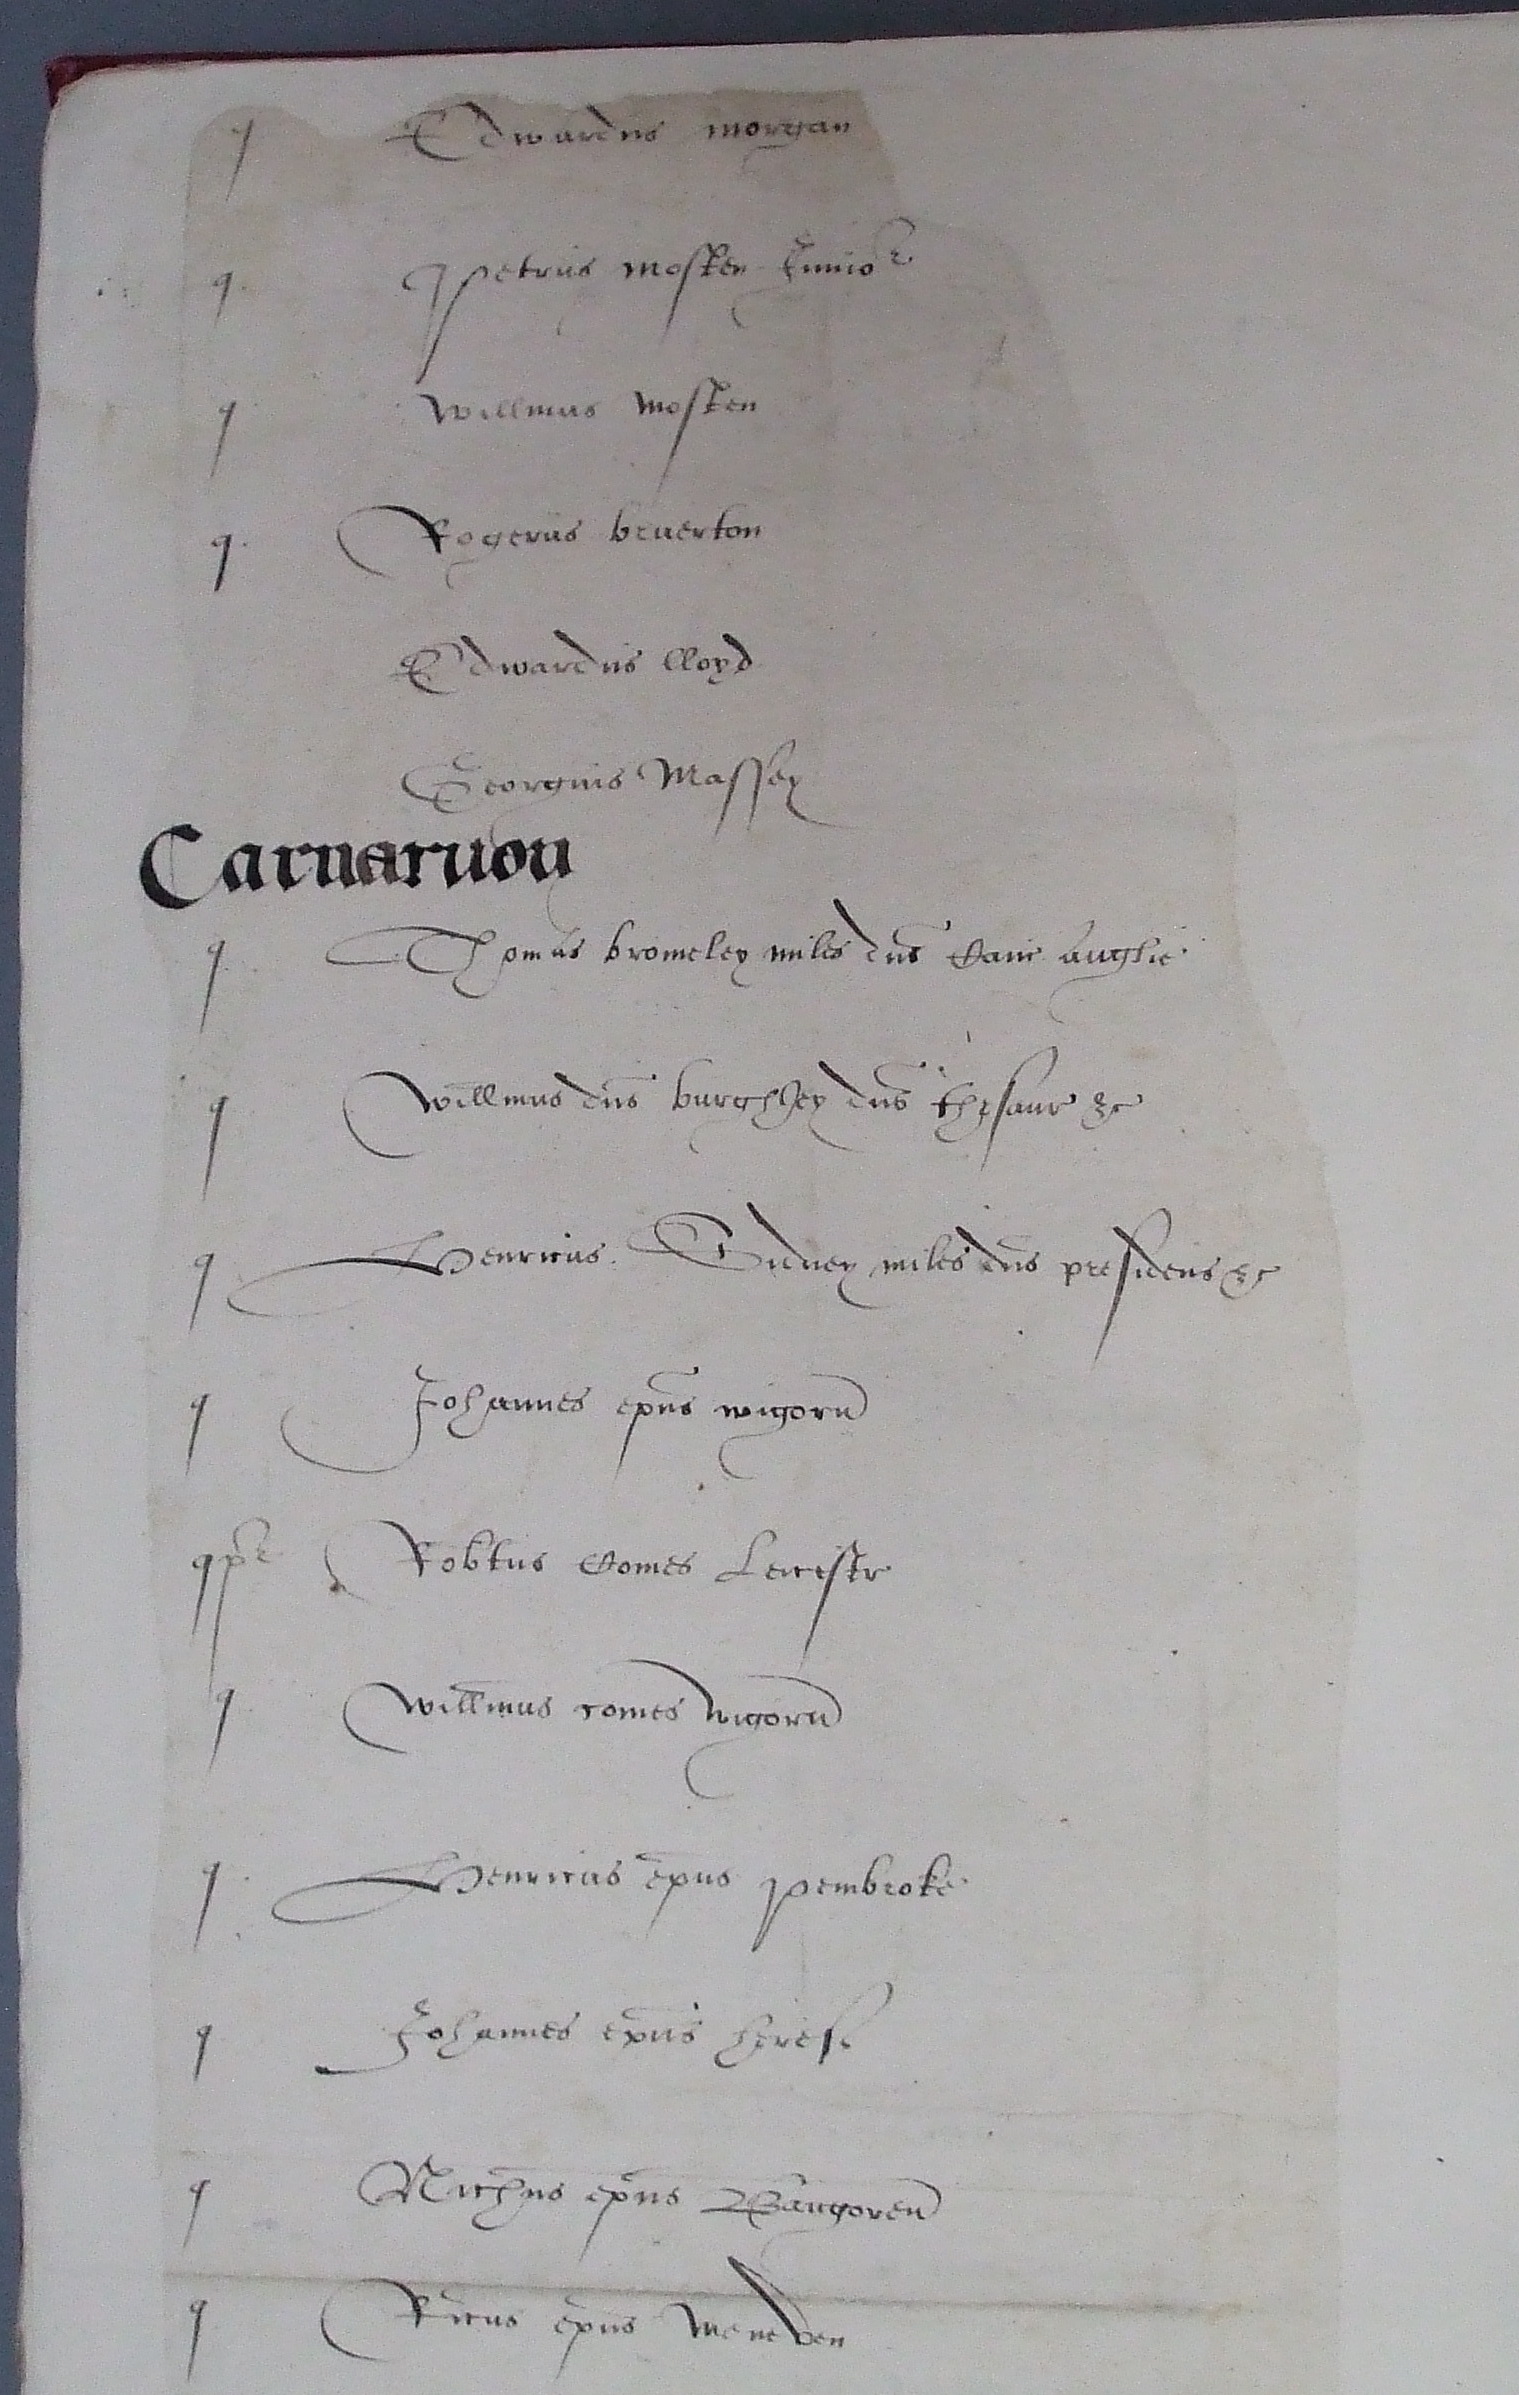 q Edwardus morgan
q. Petrus mosten Junior
q Willmus mosten
q. Rogerus bruerton
Edwardus lloyd
Georgius Massey
Carnaruon
q Thomas bromeley miles dns Canc anglie
q Willmus dns burghley dns thesaur &c
q Henricus Sidney miles dns presidens &c
q Johannes epus wigorn
q Robtus Comes Leicestr
q Willmus comes wigorn
q Henricus epus pembroke
q Johannes epus heref
q Nichus epus Bangoren
q Ricus epus meneven